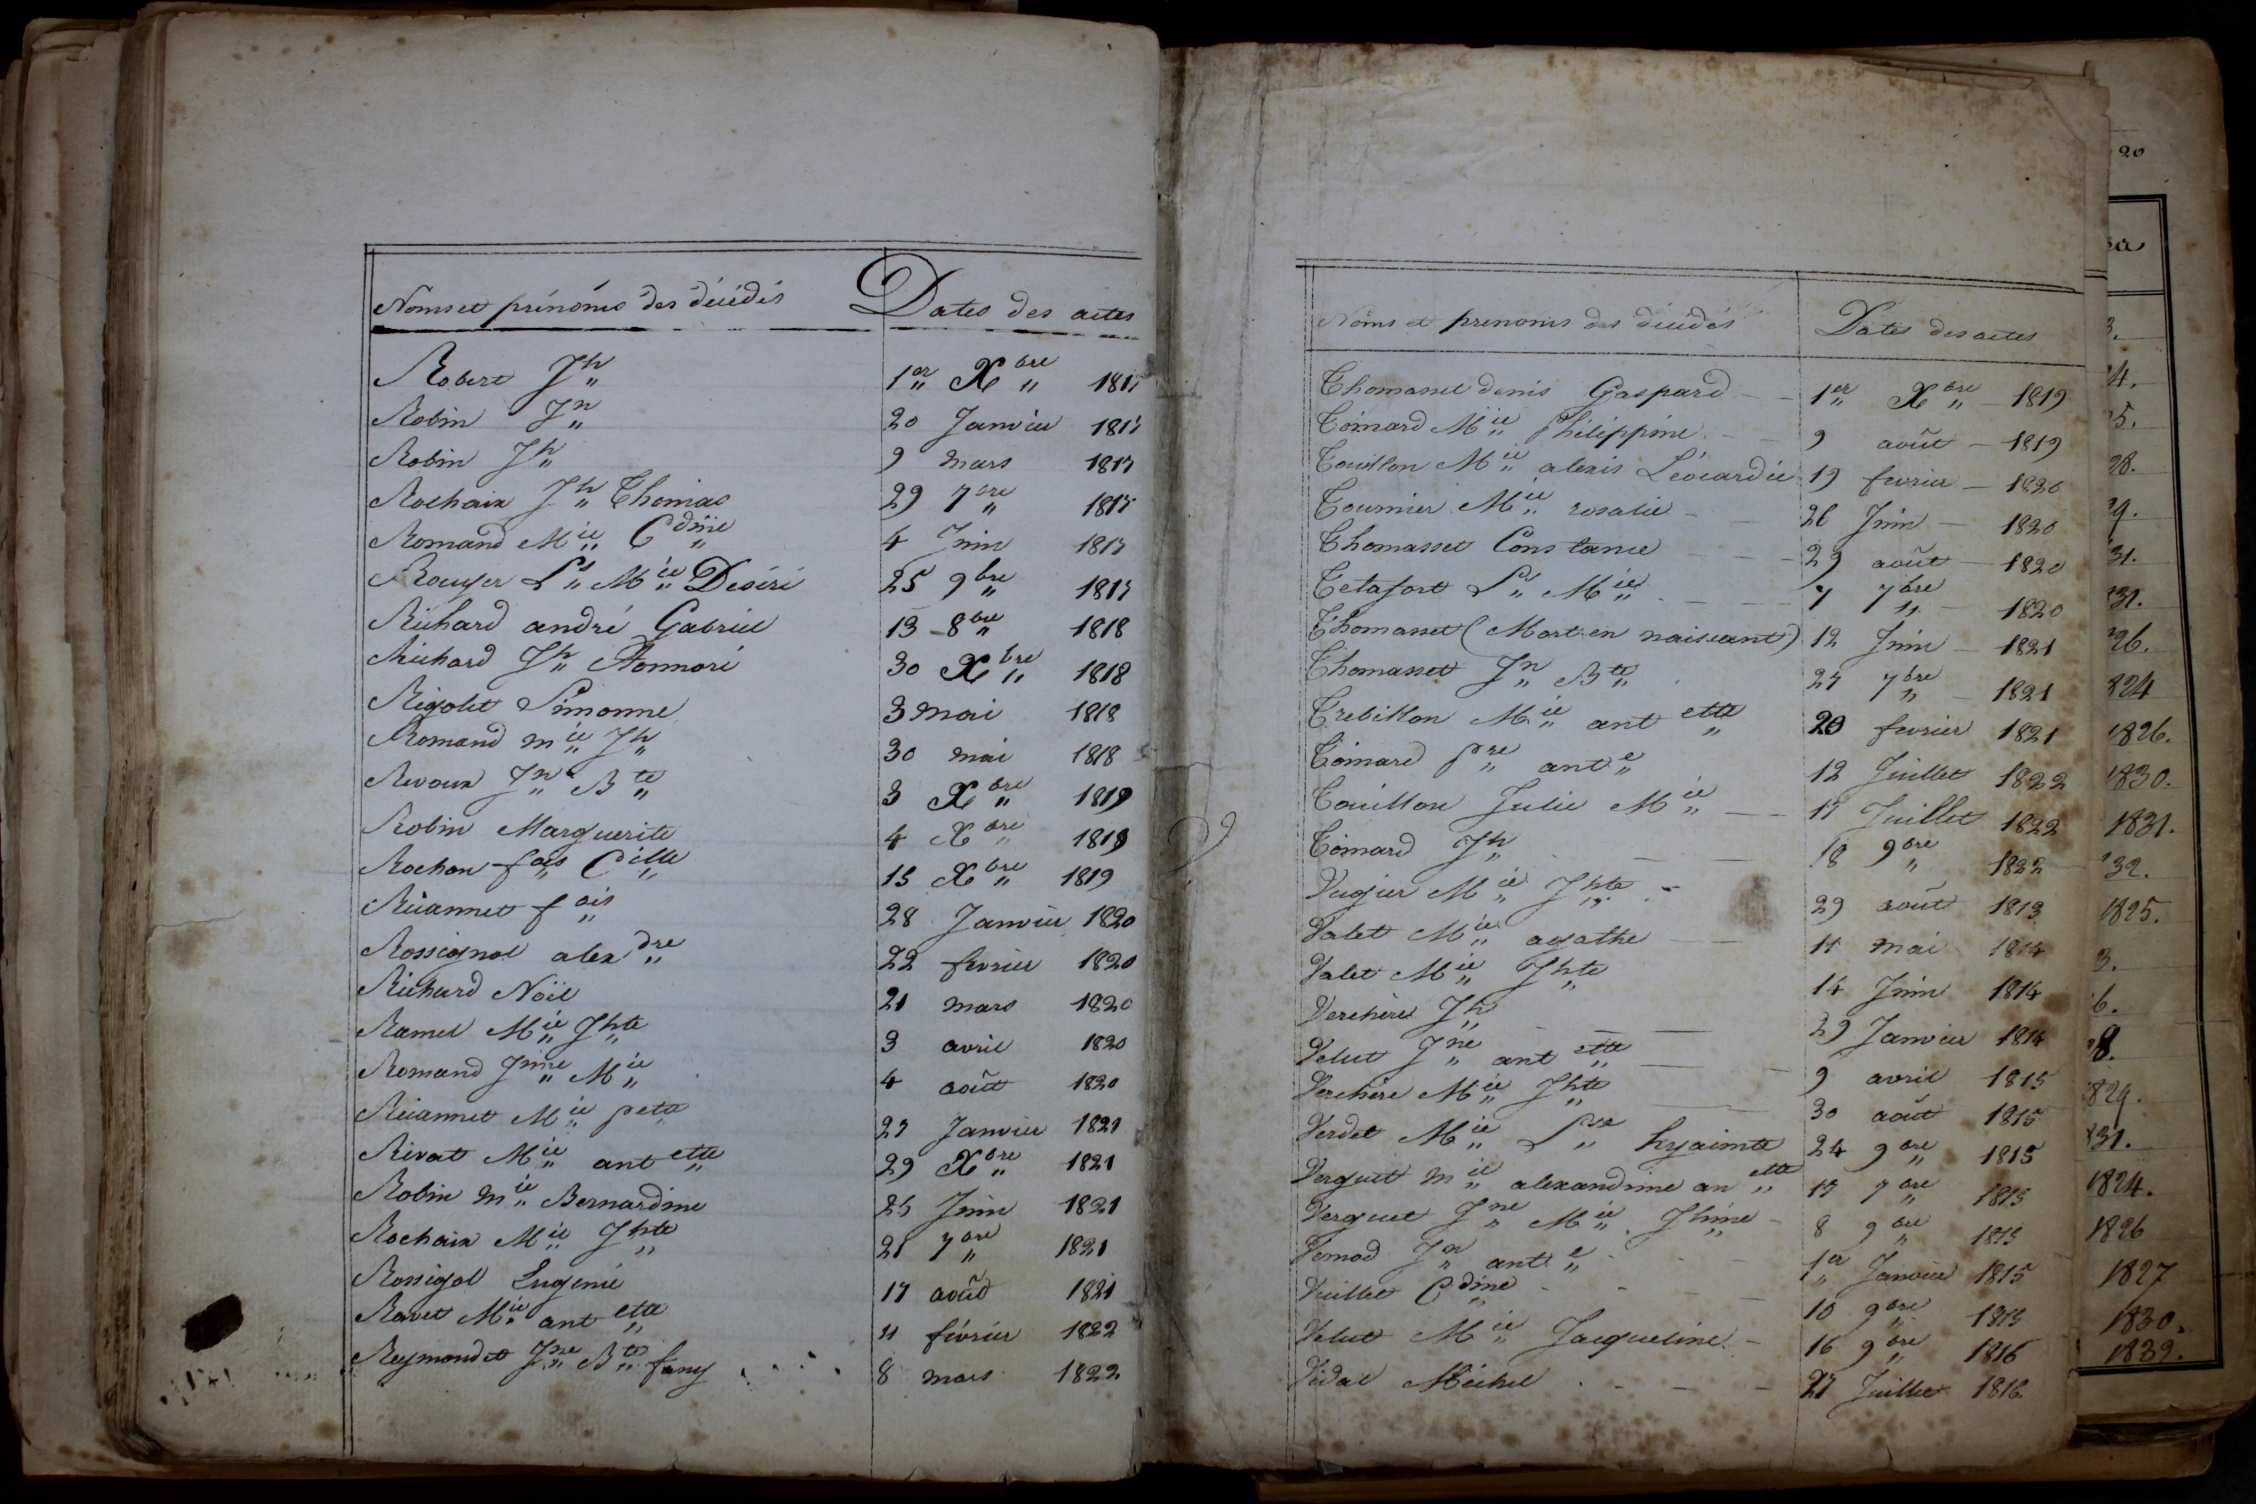 Noms et prénoms des décédés Dates des actes
Robert Jh 1er Xbre
Robin Jn 20 Janvier
Robin Jh 9 mars 1817
Rochaix Jh Thomas 29 7bre 1817
Romand Mie Cdine 4 Juin 1817
Rouyer Ls Mie Désiré 25 9bre 1817
Richard andré Gabriel 13 8bre 1818
Richard Jh Honnoré 30 Xbre 1818
Rigolet Simonne 3 mai 1818
Romand mie Jh 30 mai 1818
Revoux Jn Bte 3 Xbre 1819
Robin Marguerite 4 Xbre 1819
Rochon fois Cille 15 Xbre 1819
Ruannet fois 28 Janvier 1820
Rossignol alexdre 22 fevrier 1820
Richard Noël 21 mars 1820
Ramel Mie Jhte 3 avril 1820
Romand Jhine Mie 4 août 1820
Ruannet Mie peta 27 Janvier 1821
Rivat Mie antette 29 Xbre 1821
Robin mie Bernardine 25 Juin 1821
Rochaix Mie Jhte 21 7bre 1821
Rossigol Eugenie 17 août 1821
Ravet Mie antette 11 février 1822
Reymondet Jne Bte fany 8 mars 1822
Noms et prenoms des décédés Dates des actes
Thomasset denis Gaspard 1er Xbre 1819
Tomard Mie Philippine 9 août 1819
Touillon Mie alexis Léocardie 19 fevrier 1820
Tournier Mie rosalie 26 Juin 1820
Thomasset Constance 29 août 1820
Tetafort Ls Mie 7 7bre 1820
Thomasset (Mort en naissant) 12 Juin 1821
Thomasset Jn Bte 27 7bre 1821
Trebillon Mie antette 20 fevrier 1821
Tomard pre ante 12 Juillet 1822
Touillon Julie Mie 17 Juillet 1822
Tomard Jh 18 9bre 1822
Vugier Mie Jhte 29 août 1813
Valet Mie agathe 11 mai 1814
Valet Mie Jhte 14 Juin 1814
Verchère Jh 29 Janvier 1814
Velut Jne antette 9 avril 1815
Verchère Mie Jhte 30 août 1815
Verdet Mie Lse hyacinte 24 9bre 1815
Verguet mie alexandrine anette 17 7bre 1815
Verguet Jne Mie Jhine 8 9bre 1815
Jn ante 1er Janvier 1815
Vuillet Cdine 10 9bre 1815
Velut Mie Jacqueline 16 9bre 1816
Vidal Michel 27 Juillet 1816
20
824
1826.
1830.
1831.
32.
1825.
829.
31.
1824.
1826
1827
1830.
1832.